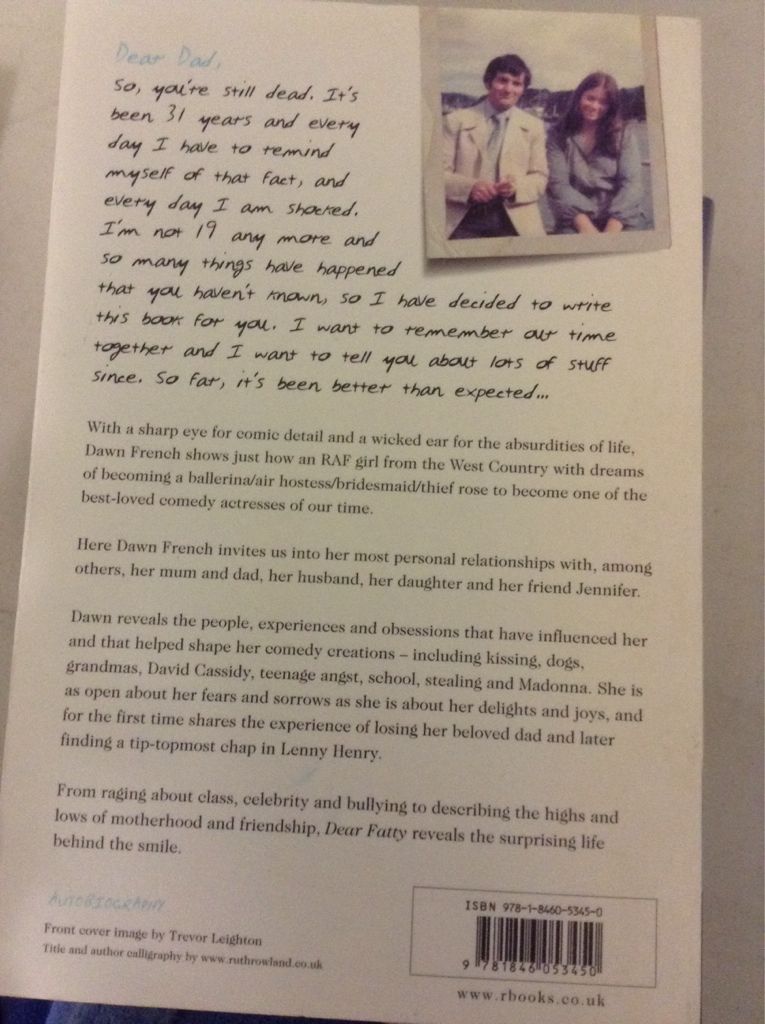 Dear Dad,
So, you're still dead. It's
been 31 years and every
day I have to remind
myself of that fact, and
every day I am shocked.
I'm not 19 any more and
so many things have happened
that you haven't known, so I have decided to write
this book for you. I want to remember our time
together and I want to tell you about lots of stuff
since. So far, it's been better than expected...
With a sharp eye for comic detail and a wicked ear for the absurdities of life,
Dawn French shows just how an RAF girl from the West Country with dreams
of becoming a ballerina/air hostess/bridesmaid/thief rose to become one of the
best-loved comedy actresses of our time.
Here Dawn French invites us into her most personal relationships with, among
others, her mum and dad, her husband, her daughter and her friend Jennifer.
Dawn reveals the people, experiences and obsessions that have influenced her
and that helped shape her comedy creations – including kissing, dogs,
grandmas, David Cassidy, teenage angst, school, stealing and Madonna. She is
as open about her fears and sorrows as she is about her delights and joys, and
for the first time shares the experience of losing her beloved dad and later
finding a tip-topmost chap in Lenny Henry.
From raging about class, celebrity and bullying to describing the highs and
lows of motherhood and friendship, Dear Fatty reveals the surprising life
behind the smile.
AUTOBIOGRAPHY
Front cover image by Trevor Leighton
Title and author calligraphy by www.ruthrowland.co.uk
ISBN 978-1-8460-5345-0
9 781846 053450
www.rbooks.co.uk